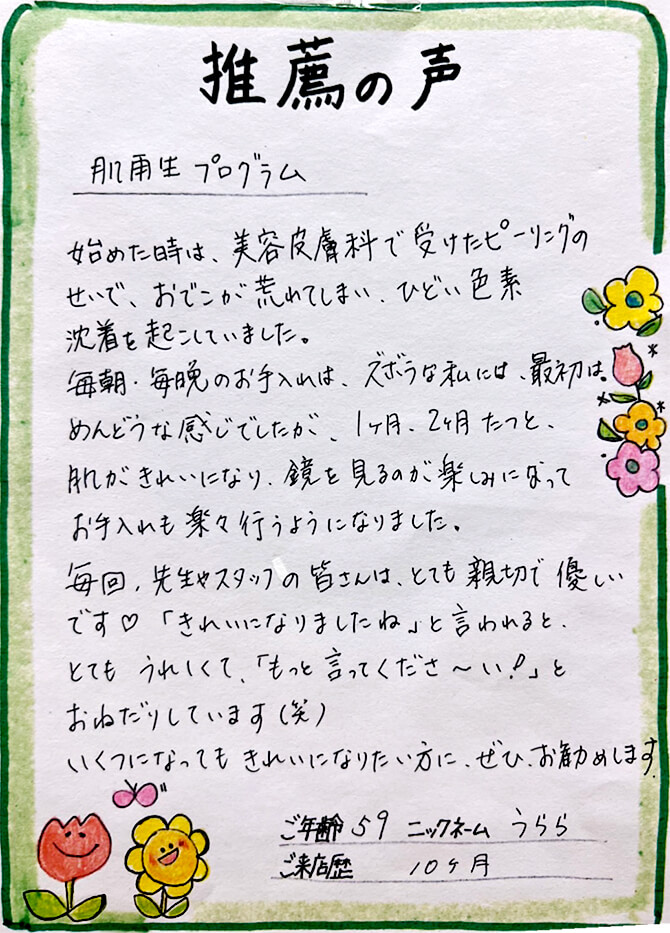 推薦の声
肌再生プログラム
始めた時は、美容皮膚科で受けたピーリングの
せいで、おでこが荒れてしまい、ひどい色素
沈着を起こしていました。
毎朝・毎晩のお手入れは、ズボラな私には、最初は、
めんどうな感じでしたが、1ヶ月、2ヶ月たつと、
肌がきれいになり、鏡を見るのが楽しみになって
お手入れも楽々行うようになりました。
毎回、先生やスタッフの皆さんは、とても親切で優しい
です♡「きれいになりましたね」と言われると、
とてもうれしくて、「もっと言ってくださ〜い!」と
おねだりしています(笑)
いくつになってもきれいになりたい方に、ぜひ、お勧めします。
ご年齢 59 ニックネーム うらら
ご来店歴 10ヶ月